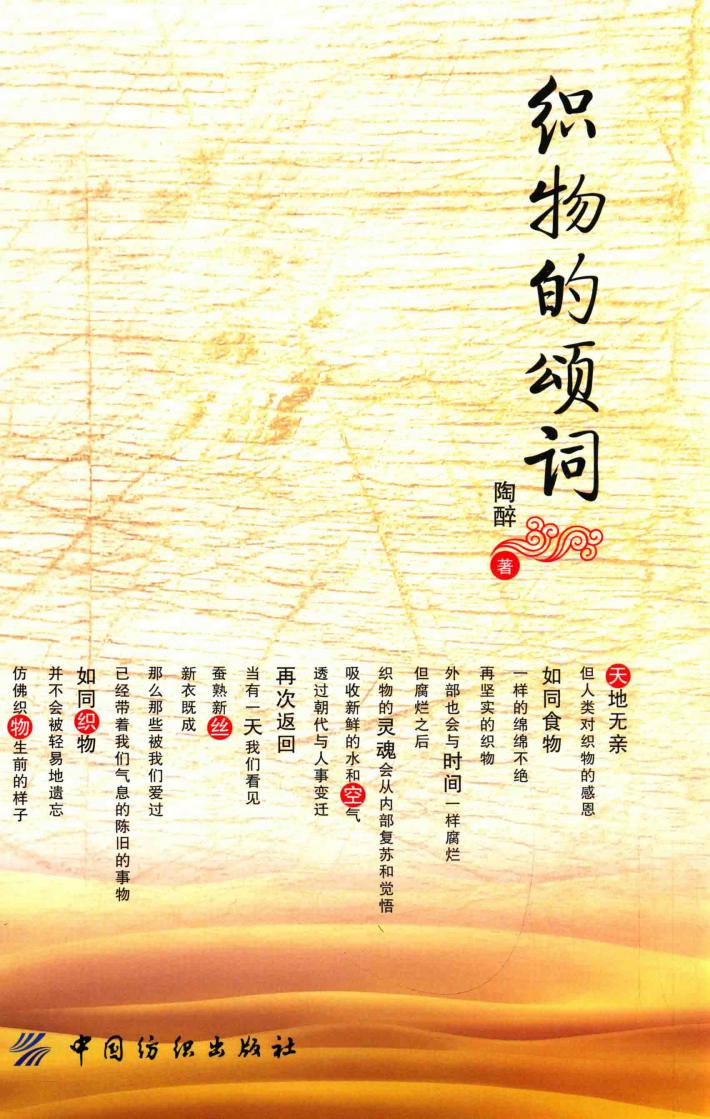 织物的颂词
陶醉
著
天地无亲
但人类对织物的感恩
如同食物
一样的绵绵不绝
再坚实的织物
外部也会与时间一样腐烂
但腐烂之后
织物的灵魂会从内部复苏和觉悟
吸收新鲜的水和空气
透过朝代与人事变迁
再次返回
当有一天我们看见
蚕熟新丝
新衣既成
那么那些被我们爱过
已经带着我们气息的陈旧的事物
如同织物
并不会被轻易地遗忘
仿佛织物生前的样子
中国纺织出版社